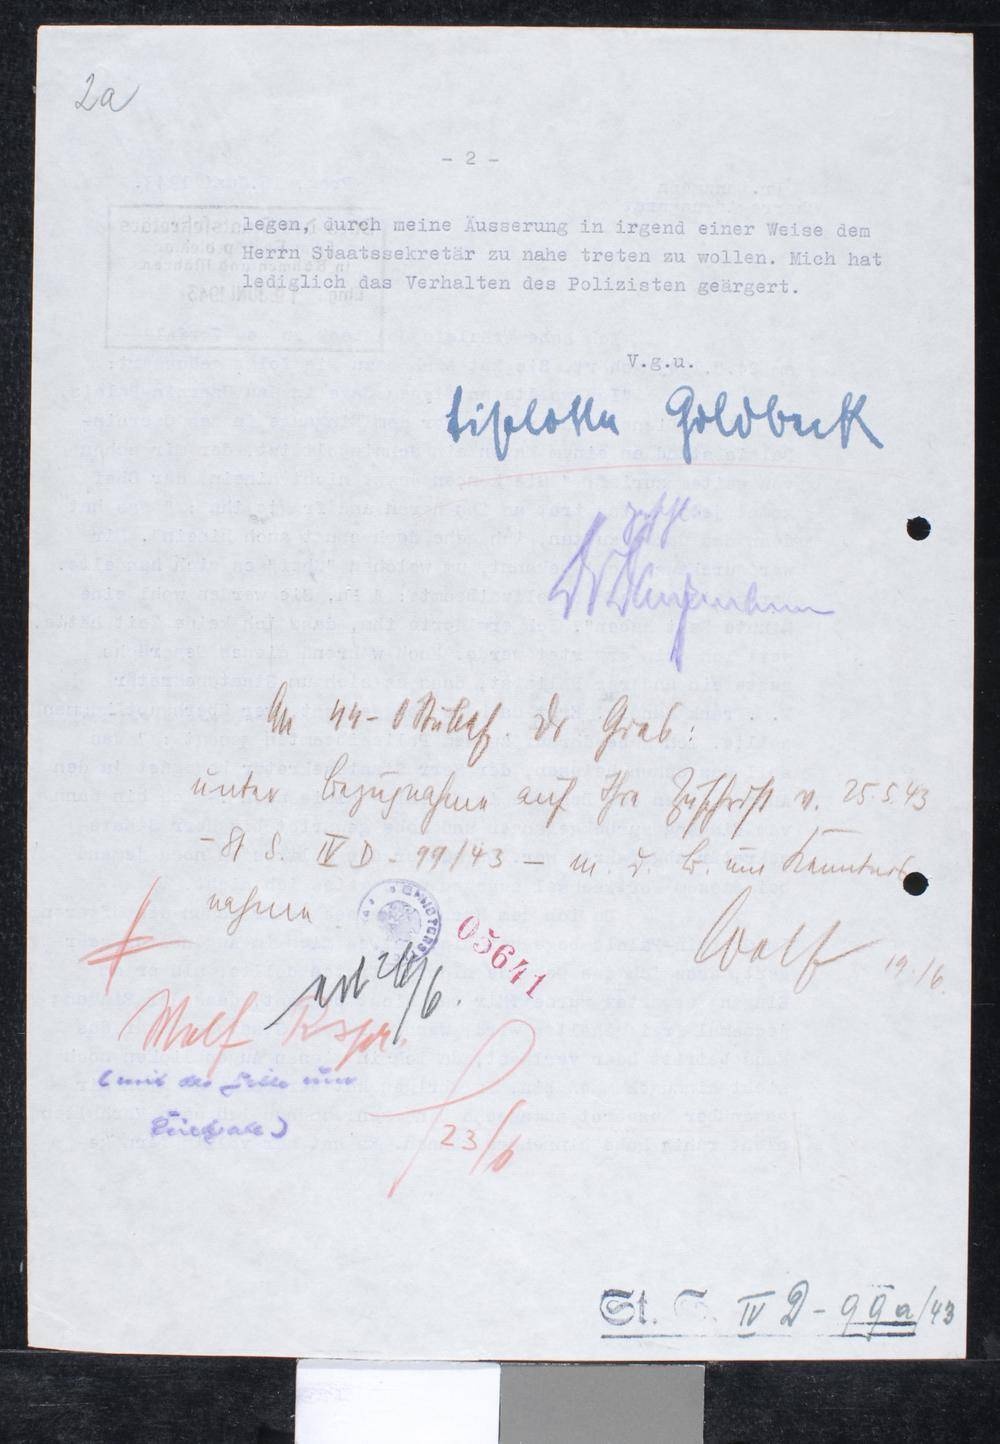 2a
- 2 -
legen, durch meine Äusserung in irgend einer Weise dem
Herrn Staatssekretär zu nahe treten zu wollen. Mich hat
lediglich das Verhalten des Polizisten geärgert.
V.g.u.
Liselotte Goldbeck
An SS-O'Stubaf. Dr Gies:
unter Bezugnahme auf Ihre Zuschrift v. 25.5.43
- St S. IV D - 99/43 - m. d. B. um Kenntnis
nahme
05641
Wolf 19./6.
24/6.
Wolf
23/6
St. S. IV D - 99a/43